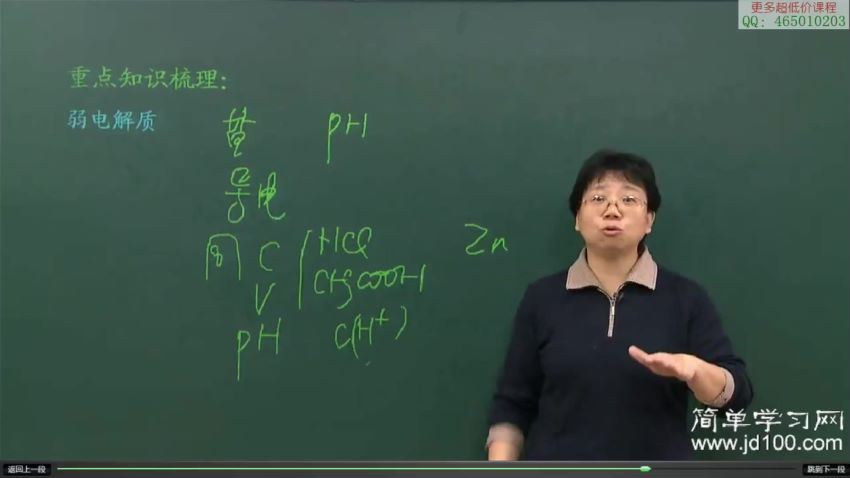 更多超低价课程
QQ: 465010203
重点知识梳理:
弱电解质
pH
导电
同 C HCl Zn
V CH3COOH
pH C(H+)
简单学习网
www.jd100.com
返回上一段
跳到下一段